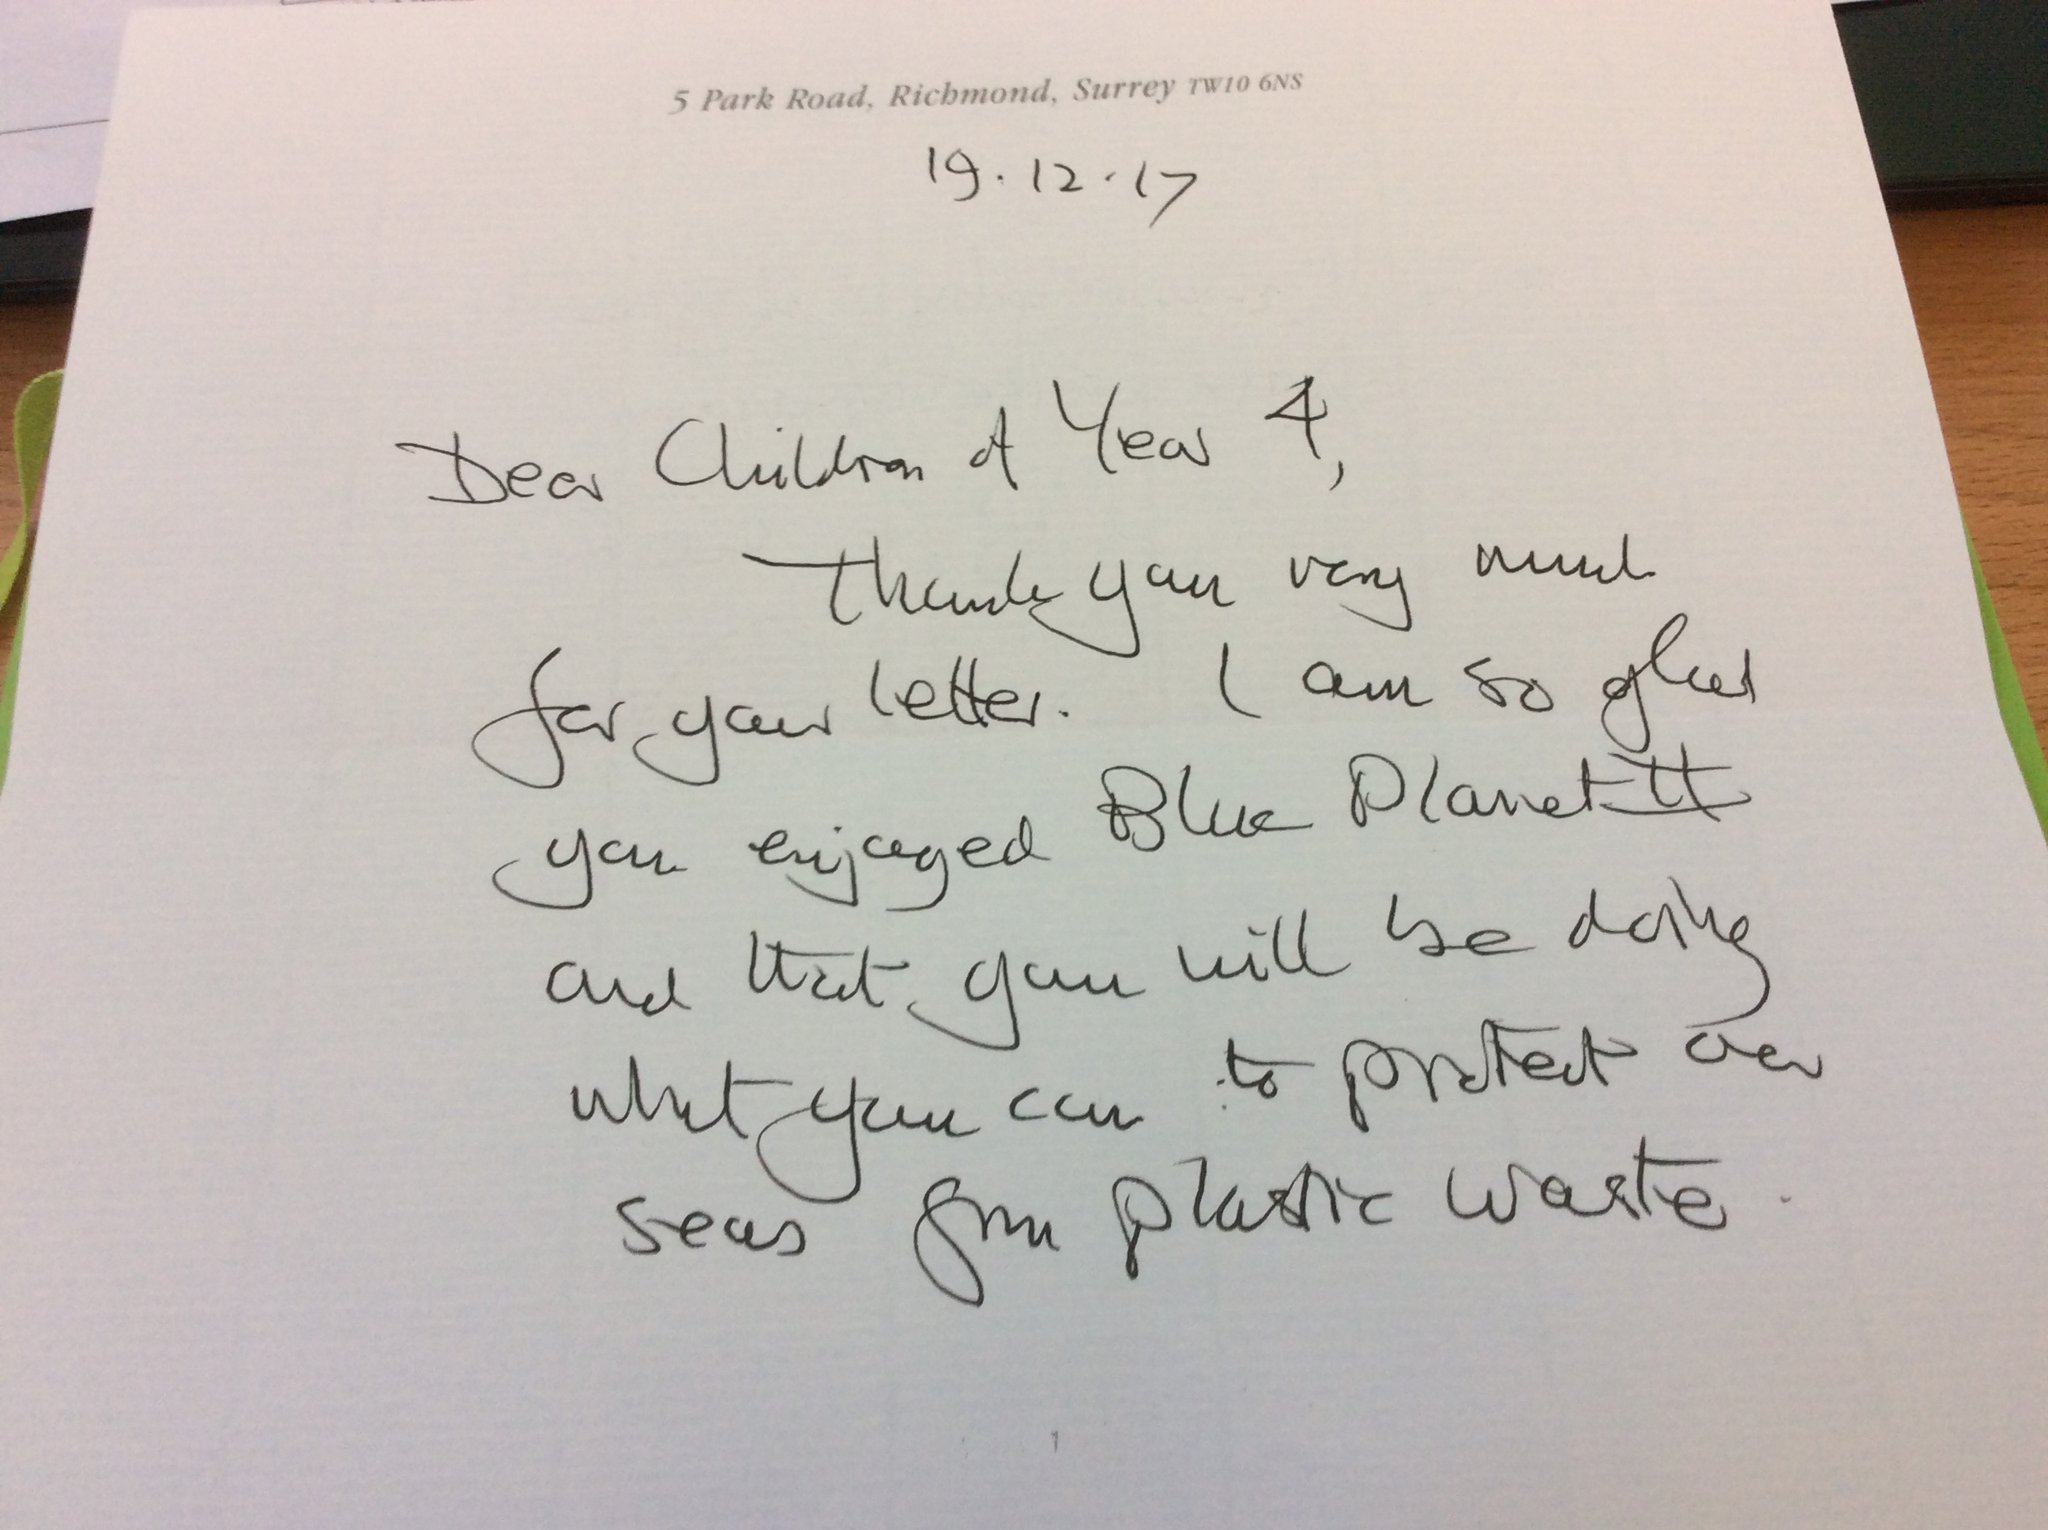 5 Park Road, Richmond, Surrey TW10 6NS
19.12.17
Dear Children of Year 4,
Thank you very much
for your letter. I am so glad
you enjoyed Blue Planet II
and that you will be doing
what you can to protect our
seas from plastic waste.
1